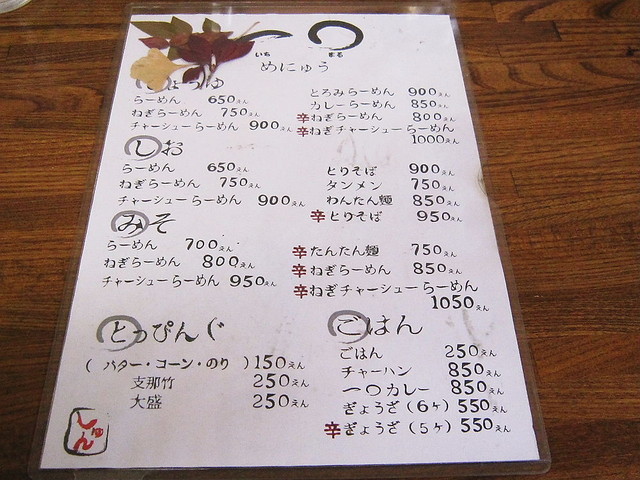 一〇
いち まる
めにゅう
しょうゆ
らーめん 650えん
ねぎらーめん 750えん
チャーシューらーめん 900えん
とろみらーめん 900えん
カレーらーめん 850えん
辛ねぎらーめん 800えん
辛ねぎチャーシューらーめん
1000えん
しお
らーめん 650えん
ねぎらーめん 750えん
チャーシューらーめん 900えん
とりそば 900えん
タンメン 750えん
わんたん麺 850えん
辛とりそば 950えん
みそ
らーめん 700えん
ねぎらーめん 800えん
チャーシューらーめん 950えん
辛たんたん麺 750えん
辛ねぎらーめん 850えん
辛ねぎチャーシューらーめん
1050えん
とっぴんぐ
(バター・コーン・のり)150えん
支那竹 250えん
大盛 250えん
ごはん
ごはん 250えん
チャーハン 850えん
一〇カレー 850えん
ぎょうざ(6ヶ)550えん
辛ぎょうざ(5ヶ)550えん
しゅん